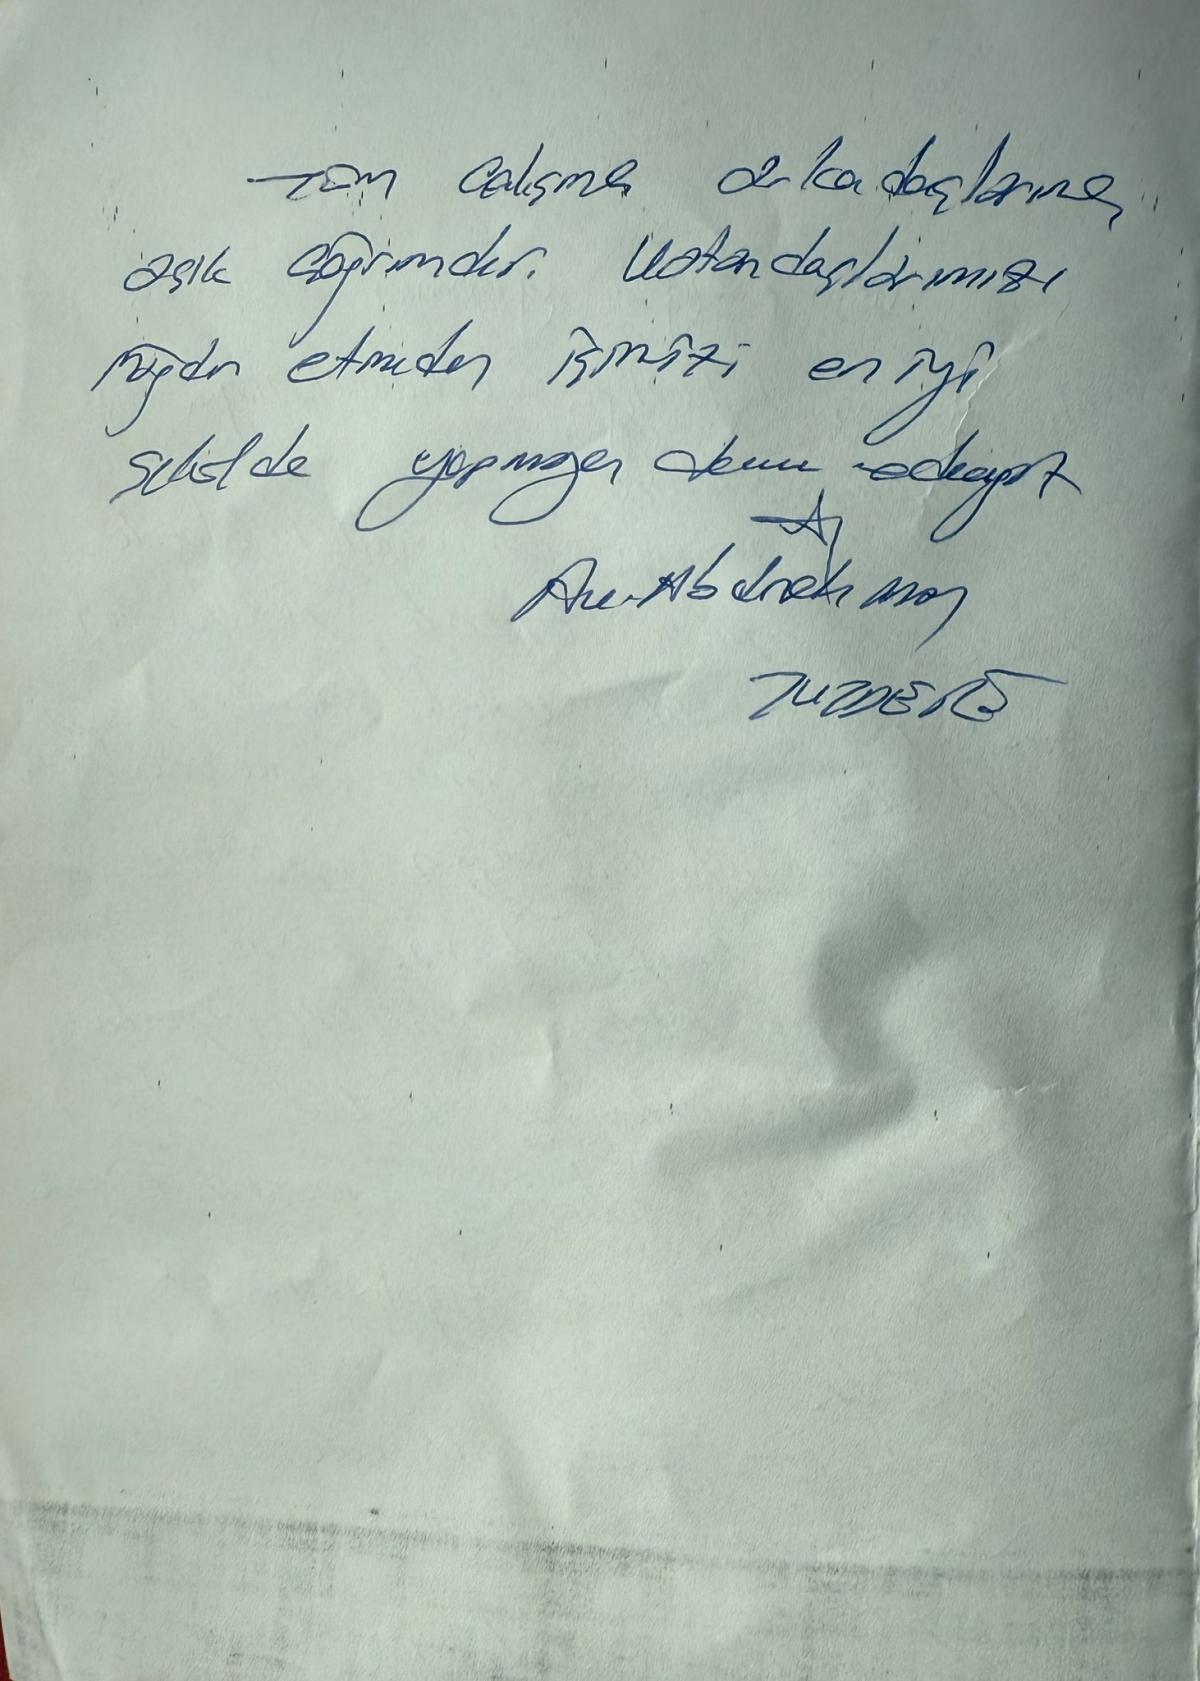 Tüm çalışma arkadaşlarıma
açık çağrımdır. Vatandaşlarımızı
mağdur etmeden işimizi en iyi
şekilde yapmaya devam edeceğiz
Av. Abdurrahman
TUTDERE